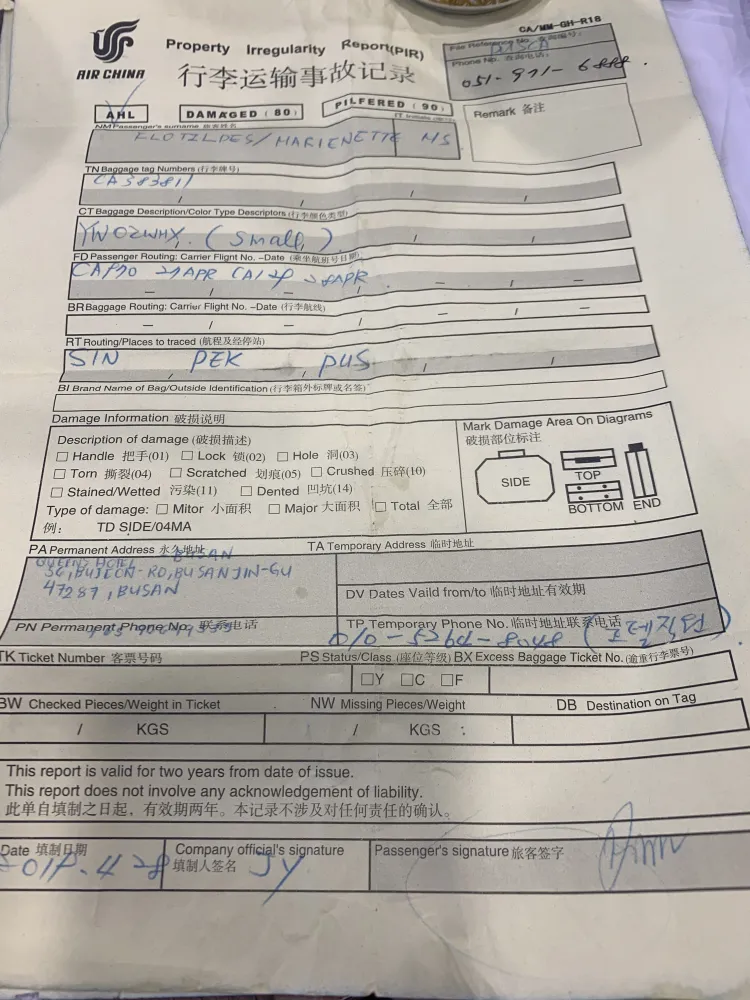 CA/MM-GH-R18
AIR CHINA
Property Irregularity Report(PIR)
行李运输事故记录
File Reference No. 查询编号:
Phone No. 查询电话:
051-971-6888.
AHL
DAMAGED (80)
PILFERED (90)
Remark 备注
NM Passenger's surname 旅客姓名
IT
KLOTZLDES/MARIENETTE MS
TN Baggage tag Numbers (行李牌号)
CA383811
CT Baggage Description/Color Type Descriptors (行李颜色类型)
YW02WHX. (small)
FD Passenger Routing: Carrier Flight No. –Date (乘坐航班号日期)
27APR 28APR
BR Baggage Routing: Carrier Flight No. –Date (行李航线)
RT Routing/Places to traced (航程及经停站)
SIN PEK PUS
BI Brand Name of Bag/Outside Identification (行李箱外标牌或名签)
Damage Information 破损说明
Description of damage (破损描述)
Handle 把手(01) Lock 锁(02) Hole 洞(03)
Torn 撕裂(04) Scratched 划痕(05) Crushed 压碎(10)
Stained/Wetted 污染(11) Dented 凹坑(14)
Type of damage: Mitor 小面积 Major 大面积 Total 全部
例: TD SIDE/04MA
Mark Damage Area On Diagrams
破损部位标注
SIDE
TOP
BOTTOM
END
PA Permanent Address 永久地址
BUSAN
QUEENS HOTEL
36, BUJEON-RO, BUSANJIN-GU
47287, BUSAN
TA Temporary Address 临时地址
DV Dates Vaild from/to 临时地址有效期
PN Permanent Phone No. 联系电话
TP Temporary Phone No. 临时地址联系电话
(호텔직원)
TK Ticket Number 客票号码
PS Status/Class (座位等级)
Y C F
BX Excess Baggage Ticket No. (逾重行李票号)
BW Checked Pieces/Weight in Ticket
/ KGS
NW Missing Pieces/Weight
/ KGS :
DB Destination on Tag
This report is valid for two years from date of issue.
This report does not involve any acknowledgement of liability.
此单自填制之日起，有效期两年。本记录不涉及对任何责任的确认。
Date 填制日期
Company official's signature
填制人签名
JY
Passenger's signature 旅客签字